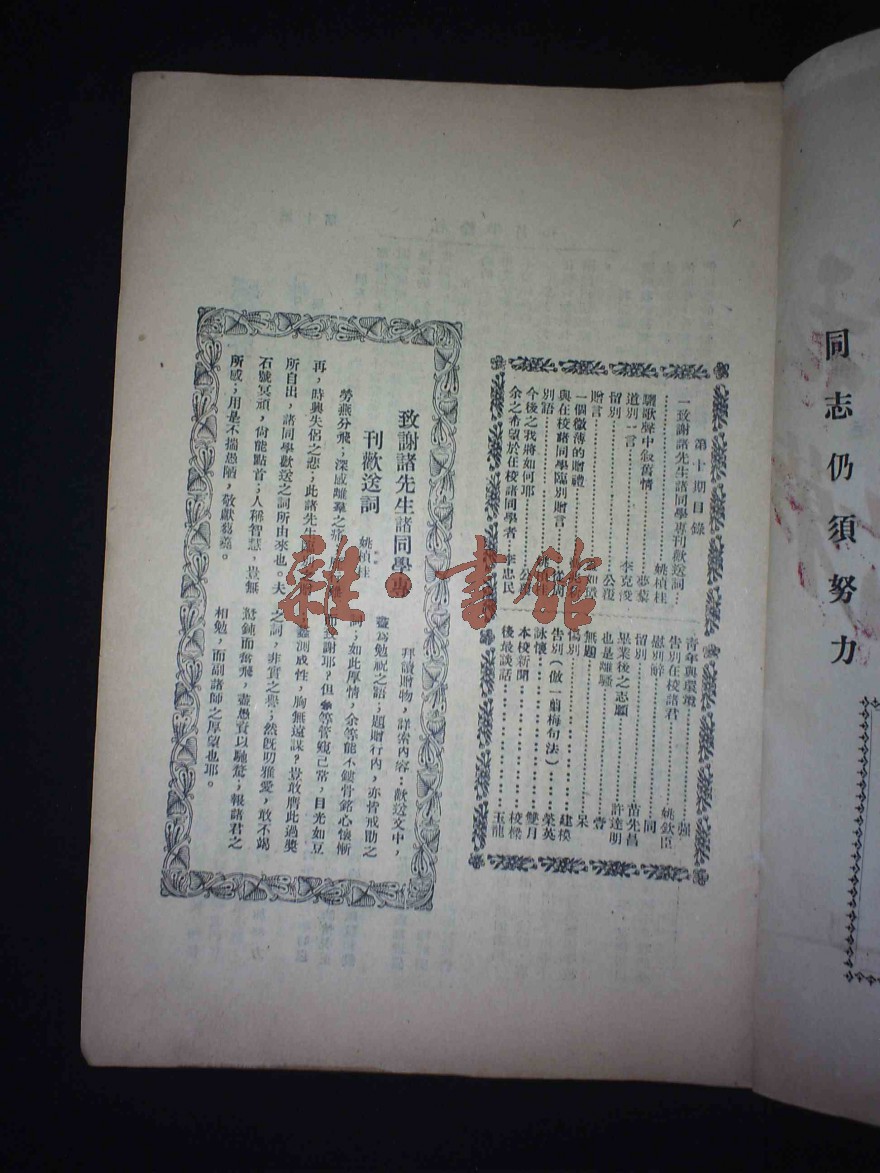 同志仍須努力
第十期目錄
一致謝諸先生諸同學專刊歡送詞…
………………姚楨柱
驪歌聲中叙舊情………夢葉
道別一言………李克浚
留別………公復
贈言………如璟
一個微薄的贈禮………
與在校諸同學臨別贈言………
別語………
今後之我將如何耶………公
余之希望於在校諸同學者 李忠民
青年與環境………強
告別在校諸君………姚欽臣
慰別辭………同
留別………苗先昌
畢業後之志願………許達明
也是離騷………
無題………呆
傷別………建模
告別(倣一翦梅句法)………榮英
詠懷………雙月
本校新聞………校樑
後最談話………玉龍
致謝諸先生諸同學專
刊歡送詞 姚楨柱
勞燕分飛;深感離羣之
再,時興失侶之悲;此諸先生
所自出,諸同學歡送之詞所由來也。夫
石號冥頑,尙能點首;人稱智慧,豈無
所感;用是不揣愚陋,敬獻蒭蕘。
拜讀贈物,詳索內容:歡送文中,
盡爲勉祝之語;題贈行內,亦皆戒勖之
詞;如此厚情,余等能不鏤骨銘心懷慚
而致謝耶?但余等管窺已常,目光如豆
蠡測成性,胸無遠謀?豈敢膺此過獎
之詞,非實之譽;然旣叨雅愛,敢不竭
駑鈍而奮飛,盡愚賁以馳騖;報諸君之
相勉,而副諸師之厚望也耶。
雜·書館